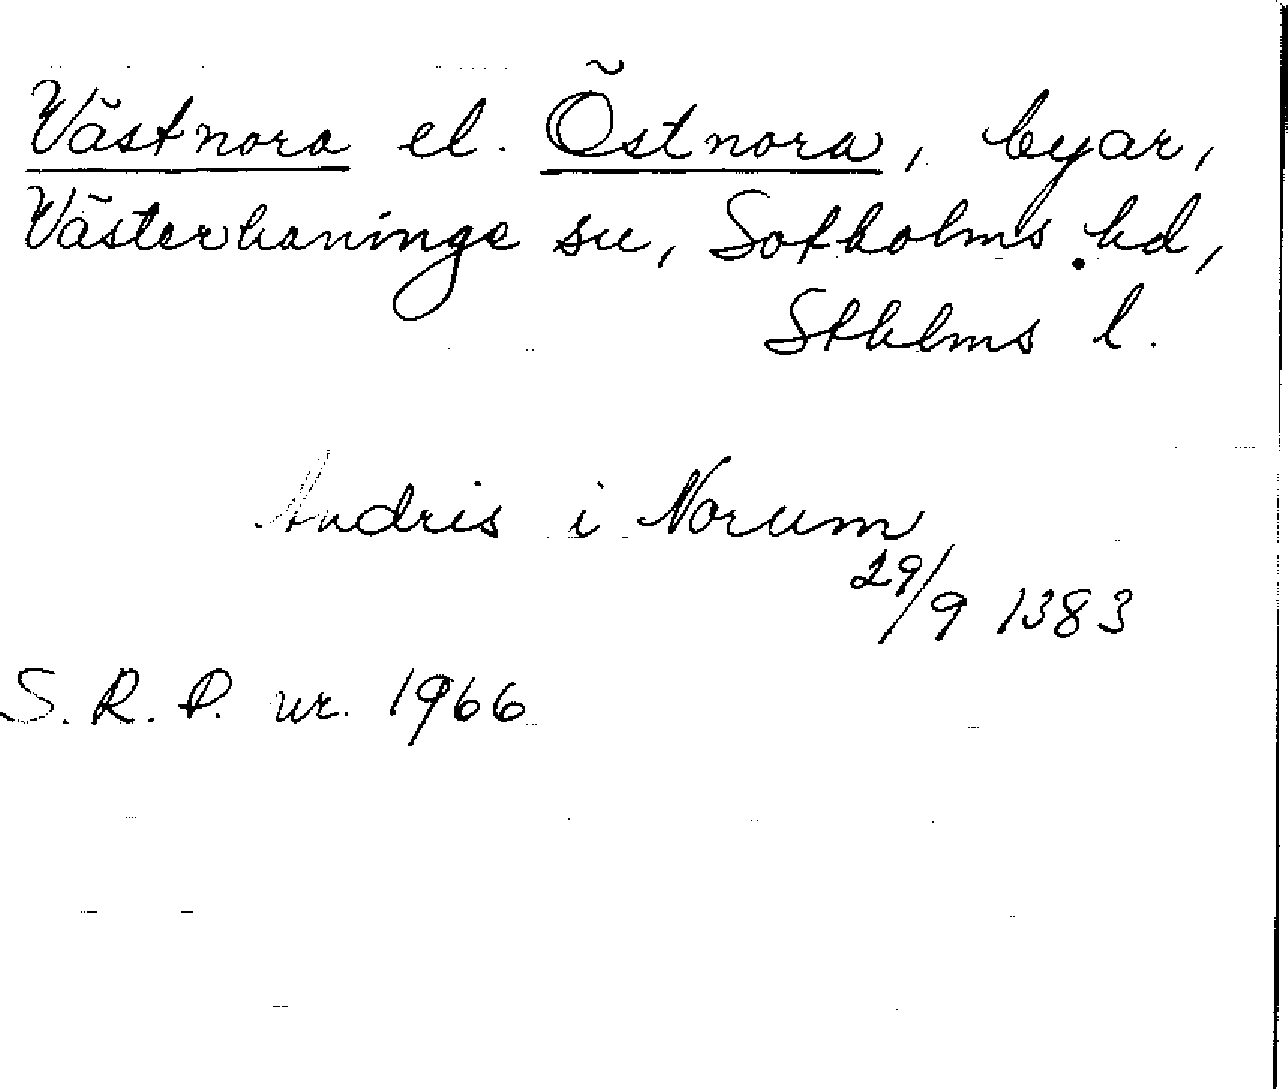 Västnora el. Östnora, byar,
Västerhaninge sn, Sotholms hd,
Sthlms l.
Andris i Norum
29/9 1383
S. R. P. nr. 1966